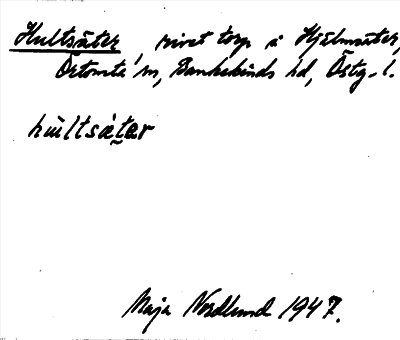 Hultsäter, rivet torp å Hjälmsäter,
Örtomta sn, Bankekinds hd, Östg. l.
hultsä̀tər
Maja Nordlund 1947.